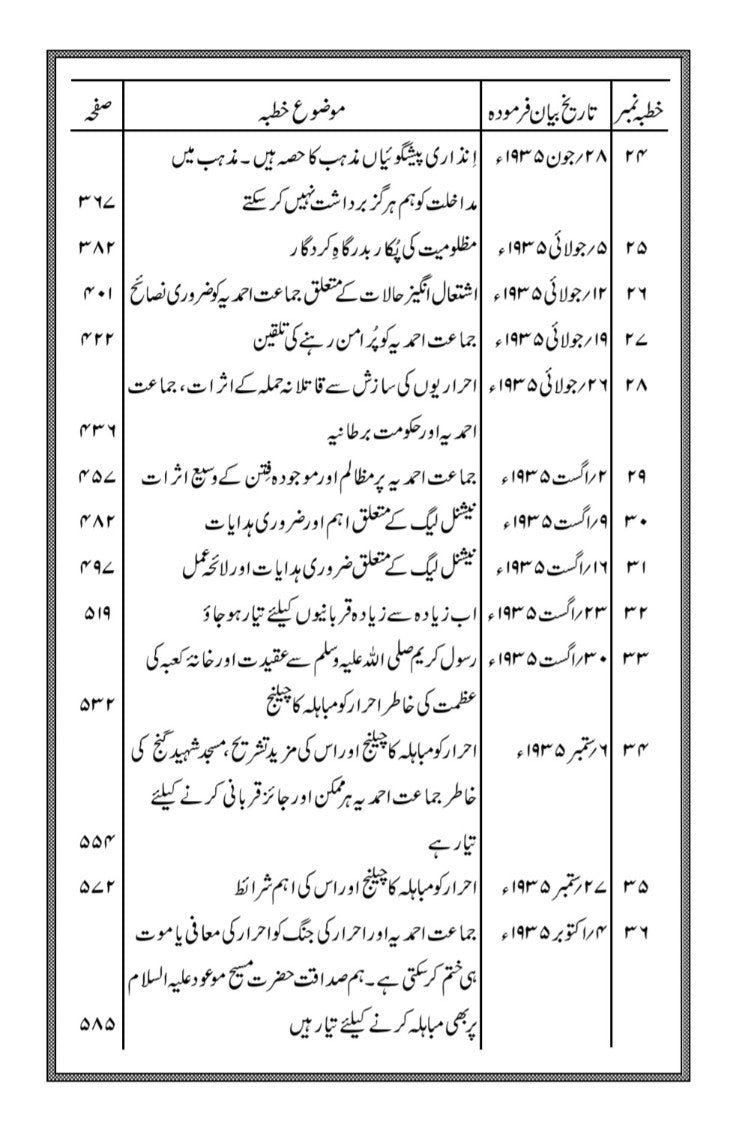 خطبہ نمبر تاریخ بیان فرمودہ موضوع خطبہ صفحہ
۲۴ ۲۸؍جون ۱۹۳۵ء اِنذاری پیشگوئیاں مذہب کا حصہ ہیں ۔ مذہب میں
مداخلت کو ہم ہرگز برداشت نہیں کر سکتے ۳۶۷
۲۵ ۵؍جولائی ۱۹۳۵ء مظلومیت کی پُکار بدرگاہِ کردگار ۳۸۲
۲۶ ۱۲؍جولائی ۱۹۳۵ء اشتعال انگیز حالات کے متعلق جماعت احمدیہ کو ضروری نصائح ۴۰۱
۲۷ ۱۹؍جولائی ۱۹۳۵ء جماعت احمدیہ کو پُر امن رہنے کی تلقین ۴۲۲
۲۸ ۲۶؍جولائی ۱۹۳۵ء احراریوں کی سازش سے قاتلانہ حملہ کے اثرات، جماعت
احمدیہ اور حکومت برطانیہ ۴۳۶
۲۹ ۲؍اگست ۱۹۳۵ء جماعت احمدیہ پر مظالم اور موجودہ فِتن کے وسیع اثرات ۴۵۷
۳۰ ۹؍اگست ۱۹۳۵ء نیشنل لیگ کے متعلق اہم اور ضروری ہدایات ۴۸۲
۳۱ ۱۶؍اگست ۱۹۳۵ء نیشنل لیگ کے متعلق ضروری ہدایات اور لائحہ عمل ۴۹۷
۳۲ ۲۳؍اگست ۱۹۳۵ء اب زیادہ سے زیادہ قربانیوں کیلئے تیار ہو جاؤ ۵۱۹
۳۳ ۳۰؍اگست ۱۹۳۵ء رسول کریم صلی اللہ علیہ وسلم سے عقیدت اور خانۂ کعبہ کی
عظمت کی خاطر احرار کو مباہلہ کا چیلنج ۵۳۲
۳۴ ۶؍ستمبر ۱۹۳۵ء احرار کو مباہلہ کا چیلنج اور اس کی مزید تشریح، مسجد شہید گنج کی
خاطر جماعت احمدیہ ہر ممکن اور جائز قربانی کرنے کیلئے
تیار ہے ۵۵۴
۳۵ ۲۷؍ستمبر ۱۹۳۵ء احرار کو مباہلہ کا چیلنج اور اس کی اہم شرائط ۵۷۲
۳۶ ۴؍اکتوبر ۱۹۳۵ء جماعت احمدیہ اور احرار کی جنگ کو احرار کی معافی یا موت
ہی ختم کر سکتی ہے ۔ ہم صداقت حضرت مسیح موعود علیہ السلام
پر بھی مباہلہ کرنے کیلئے تیار ہیں ۵۸۵